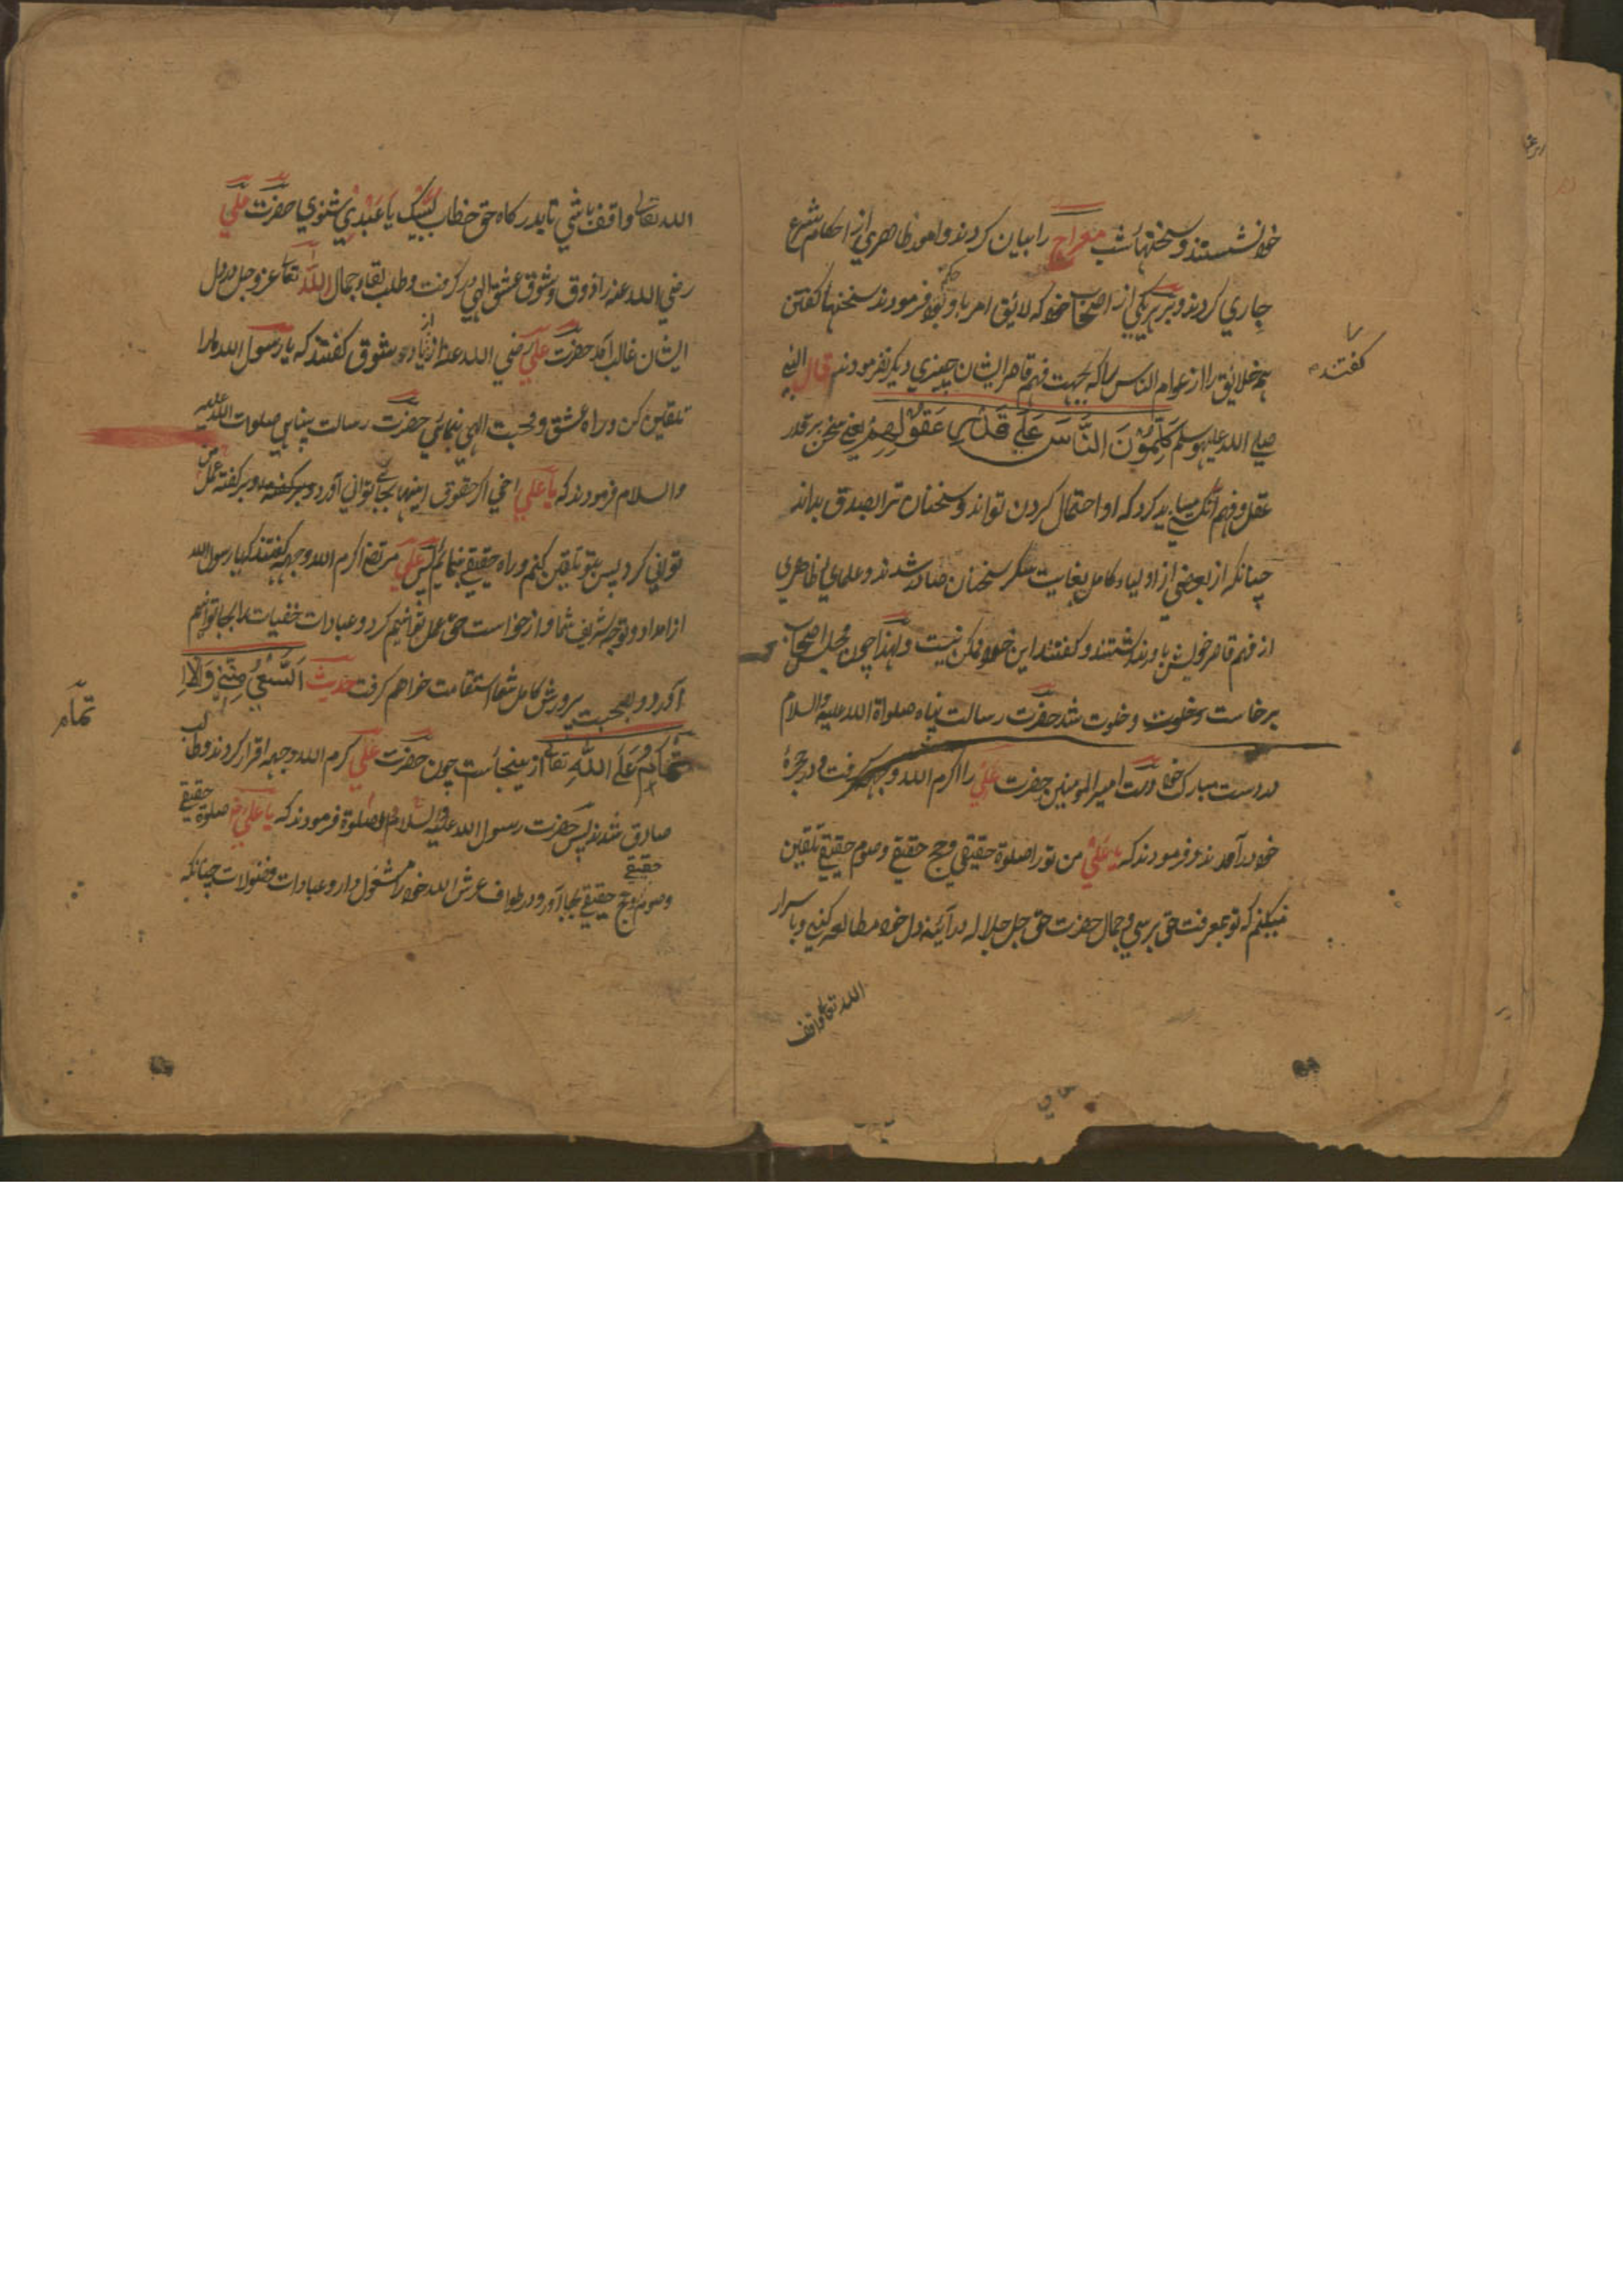 خود نشستند و سخنهاء شب معراج را بیان کردند و امور ظاهری از احکام شرع
جاری کردند و بر هر یکی از اصحاب خود که لائق امر باو بود فرمودند سخنها کفتن
همه خلایق را از عوام الناس را که بجهت فهم قاصر ایشان چیزی دیکر نفرمودند قال النبی
صلی الله علیه وسلم کَلِّمُونَ النَّاسَ عَلَی قَدْرِ عَقُولِهِمْ یعنی سخن بر قدر
عقل و فهم آنکس میباید کرد که او احتمال کردن تواند و سخنان ترا بصدق بداند
چنانکه از بعضی از اولیاء کامل بغایت سکر سخنان صادر شدند و علمای ظاهری
از فهم قاصر خویش باور نداشتند و کفتند این خود ممکن نیست و لهذا چون مجلس اصحاب
برخاست و خلوت شد حضرت رسالت پناه صلواة الله علیه والسلام
بدست مبارک خود دست امیر المؤمنین حضرت علی را کرم الله وجهه کرفت و در حجرهٔ
خود در آمدند و فرمودند که یا علی من تورا صلوة حقیقی و حج حقیقی و صوم حقیقی تلقین
میکنم که تو بمعرفت حق برسی و جمال حضرت حق جل جلاله در آئینه دل خود مطالعه کنی و باسرار
الله تعالی واقف
کفتند
الله تعالی واقف باشی تا بدرکاه حق خطاب لَبَّیک یا عَبْدِی شنوی حضرت علی
رضی الله عنه را ذوق و شوق عشق الهی در کرفت و طلب لقاء جمال الله تعالی عز و جل در دل
ایشان غالب آمد حضرت علی رضی الله عنه از شوق کفتند که یا رسول الله مارا
تلقین کن و راه عشق و محبت الهی بنمائی حضرت رسالت پناهی صلوات الله علیه
والسلام فرمودند که یا علی اخی اکر حقوق اینها بجای توانی آورد و بر کفته من عمل
توانی کرد پس بتو تلقین کنم و راه حقیقی بنمایم پس علی مرتضا کرم الله وجهه کفتند که یا رسول الله
از امداد و توجه شریف شما و از خواست حق عمل توانیم کرد و عبادات خفیات را بجا توانیم
آورد و بصحبت پرورش کامل شما استقامت خواهم کرفت حدیث اَلسَّعْیُ مِنِّی وَالْاِ
تْمَامُ عَلَی اللهِ تعالی از ینجائست چون حضرت علی کرم الله وجهه اقرار کردند و طالب
صادق شدند پس حضرت رسول الله علیه السلام والصلوة فرمودند که یا علی صلوة حقیقی
وصوم حقیقی وحج حقیقی بجا آور و در طواف عرش الله خود را مشغول دار و عبادات چنانکه
تمام